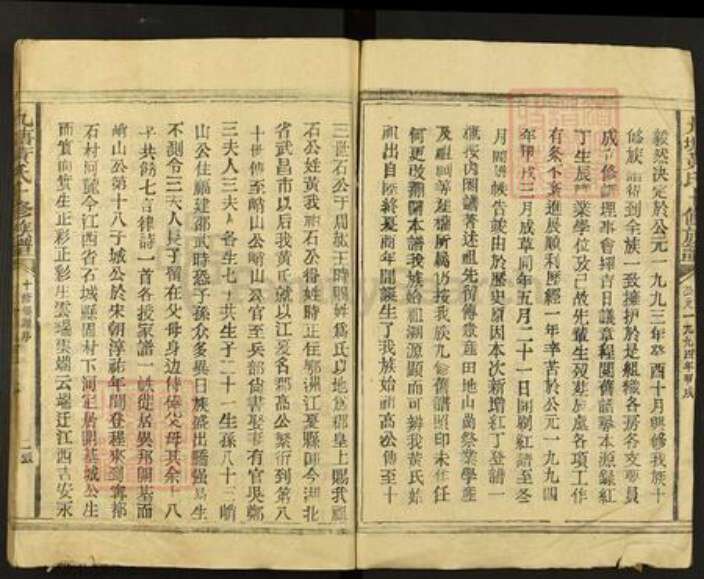 毅然決定於公元一九九三年癸酉十月興修我族十
修族譜得到全族一致擁护於是組織各房各支委員
成立修譜理事會擇吉日議章程閱舊譜摹本源録紅
丁生辰畢業學位攷已故先輩生殁葬于處各項工作
有条不紊進展順利歷經一年辛苦於公元一九九四
年甲戌三月成草同年五月二十一日開刷紅譜至冬
月圓譜帳告竣由於歷史原因本次新增紅丁登譜一
概按内图譜著述祖先留傳嘗產田地山崗祭業學產
及祖祠等產權所屬仍按我族九修舊譜照印未作任
何更改翻開本譜我族始祖渊源顯而可辨我黄氏始
祖出自陸終夏商年間誕生了我族始祖高公傳至十
三世石公于周赧王時賜姓爲氏以地爲郡皇上賜我祖
石公姓黄我祖石公得姓時正任鄂洲江夏縣即今湖北
省武昌市以后我黄氏就以江夏名郡高公繁衍到第八
十世傳至峭山公峭山公官至兵部尚書娶妻有官吴鄭
三夫人三夫人各生七子共生子二十一生孫八十三峭
山公住福建邵武時恐子孫众多異日族盛出驕强易生
不測令三夫人長子留在父母身边侍俸父母其余十八
子共餞七言律詩一首各授家譜一帙徙居異邦開基而
峭山公第十八子城公於宋朝淳祐年間登程來到寧都
石村河疏今江西省石城縣園村下河定居開基城公生
而實而實生正彩正彩生雲端雲端云端迁江西吉安永
九塘黄氏十修族譜
十修譜序
二
九塘黄氏十修族譜
公元一九九四年甲戌